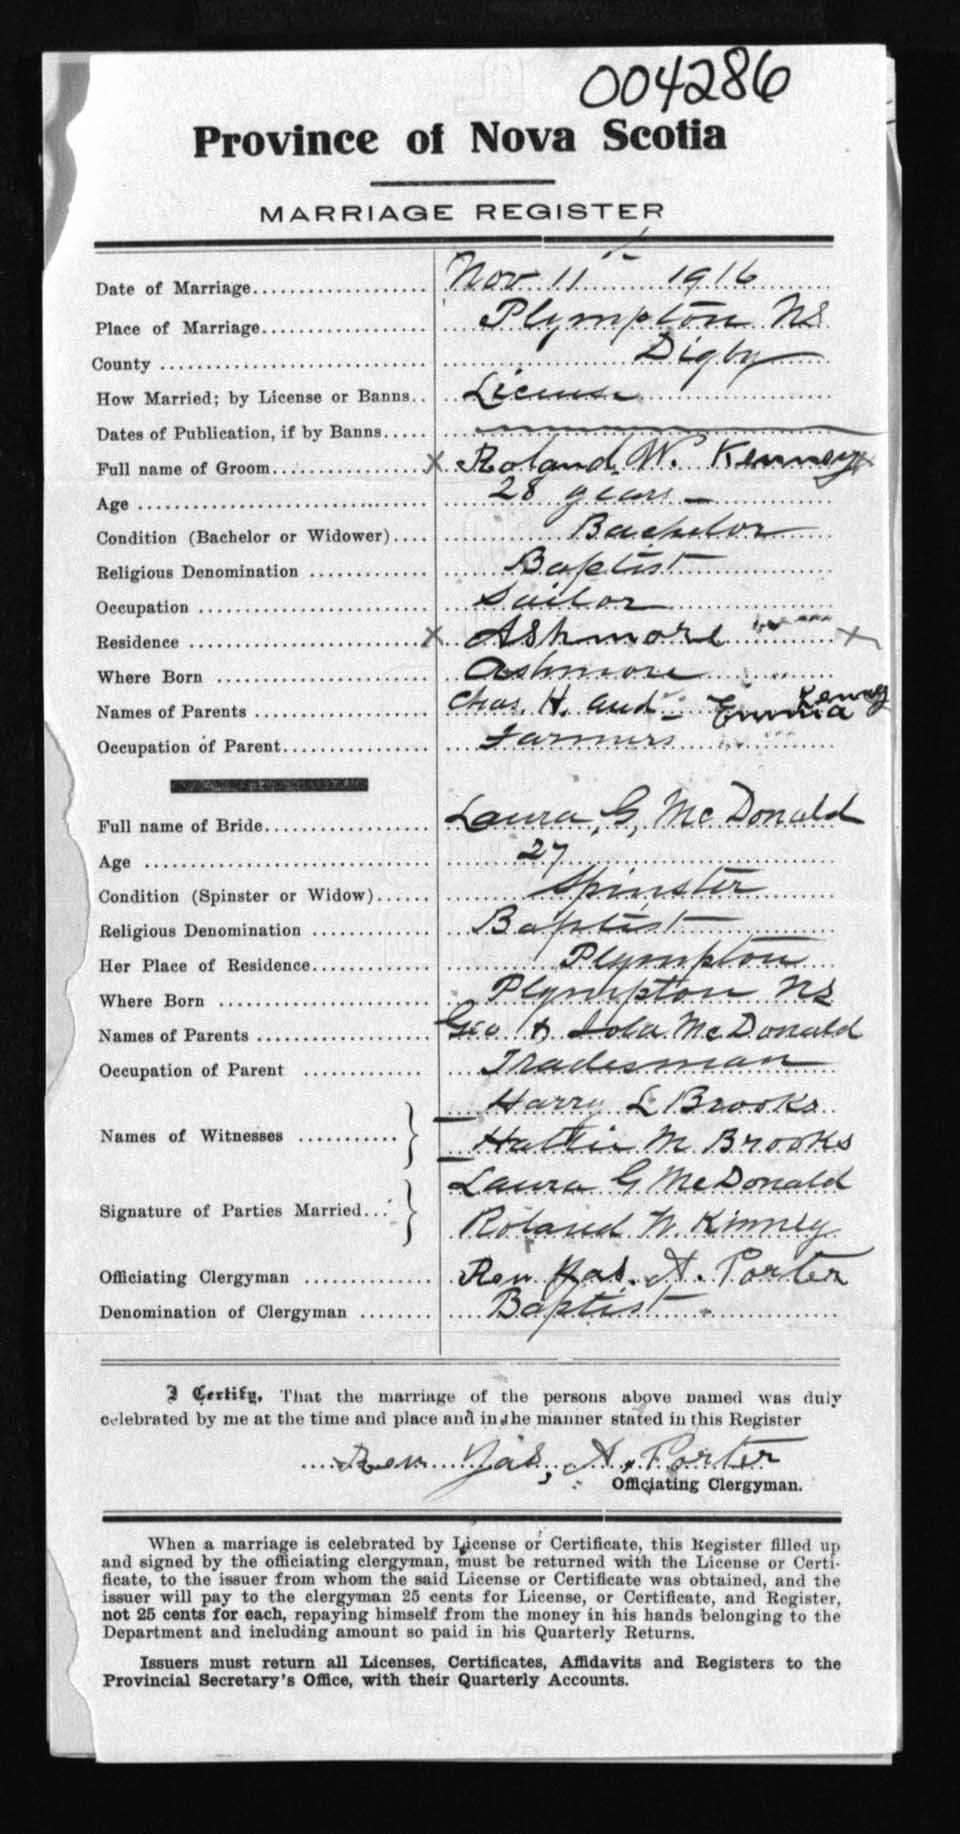 004286
Province of Nova Scotia
MARRIAGE REGISTER
Date of Marriage.................... Nov 11th 1916
Place of Marriage.................... Plympton NS
County .................... Digby
How Married; by License or Banns.. License
Dates of Publication, if by Banns.....
Full name of Groom.................... X Roland W. Kenney X
Age .................... 28 years
Condition (Bachelor or Widower).... Bachelor
Religious Denomination ............ Baptist
Occupation .................... Sailor
Residence .................... X Ashmore X
Where Born .................... Ashmore
Names of Parents .................... Chas. H. and Emma Kenney
Occupation of Parent.................... Farmers
Full name of Bride.................... Laura G. McDonald
Age .................... 27
Condition (Spinster or Widow)...... Spinster
Religious Denomination ............ Baptist
Her Place of Residence............ Plympton
Where Born .................... Plympton NS
Names of Parents .................... Geo & Lola McDonald
Occupation of Parent ............ Tradesman
Harry L Brooks
Names of Witnesses ...........
Hattie M Brooks
Laura G McDonald
Signature of Parties Married...
Roland W. Kinney
Officiating Clergyman ............ Rev Jas. A. Porter
Denomination of Clergyman ........ Baptist
I Certify, That the marriage of the persons above named was duly
celebrated by me at the time and place and in the manner stated in this Register
Rev Jas, A. Porter
Officiating Clergyman.
When a marriage is celebrated by License or Certificate, this Register filled up
and signed by the officiating clergyman, must be returned with the License or Certi-
ficate, to the issuer from whom the said License or Certificate was obtained, and the
issuer will pay to the clergyman 25 cents for License, or Certificate, and Register,
not 25 cents for each, repaying himself from the money in his hands belonging to the
Department and including amount so paid in his Quarterly Returns.
Issuers must return all Licenses, Certificates, Affidavits and Registers to the
Provincial Secretary's Office, with their Quarterly Accounts.